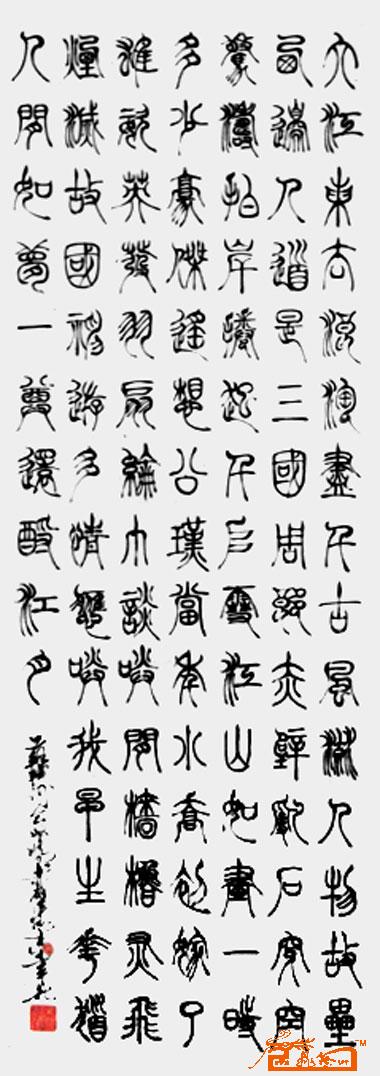 大江東去浪淘盡千古風流人物故壘
西邊人道是三國周郎赤壁亂石穿空
驚濤拍岸捲起千堆雪江山如畫一時
多少豪傑遙想公瑾當年小喬初嫁了
雄姿英發羽扇綸巾談笑間檣櫓灰飛
煙滅故國神遊多情應笑我早生華髮
人間如夢一尊還酹江月